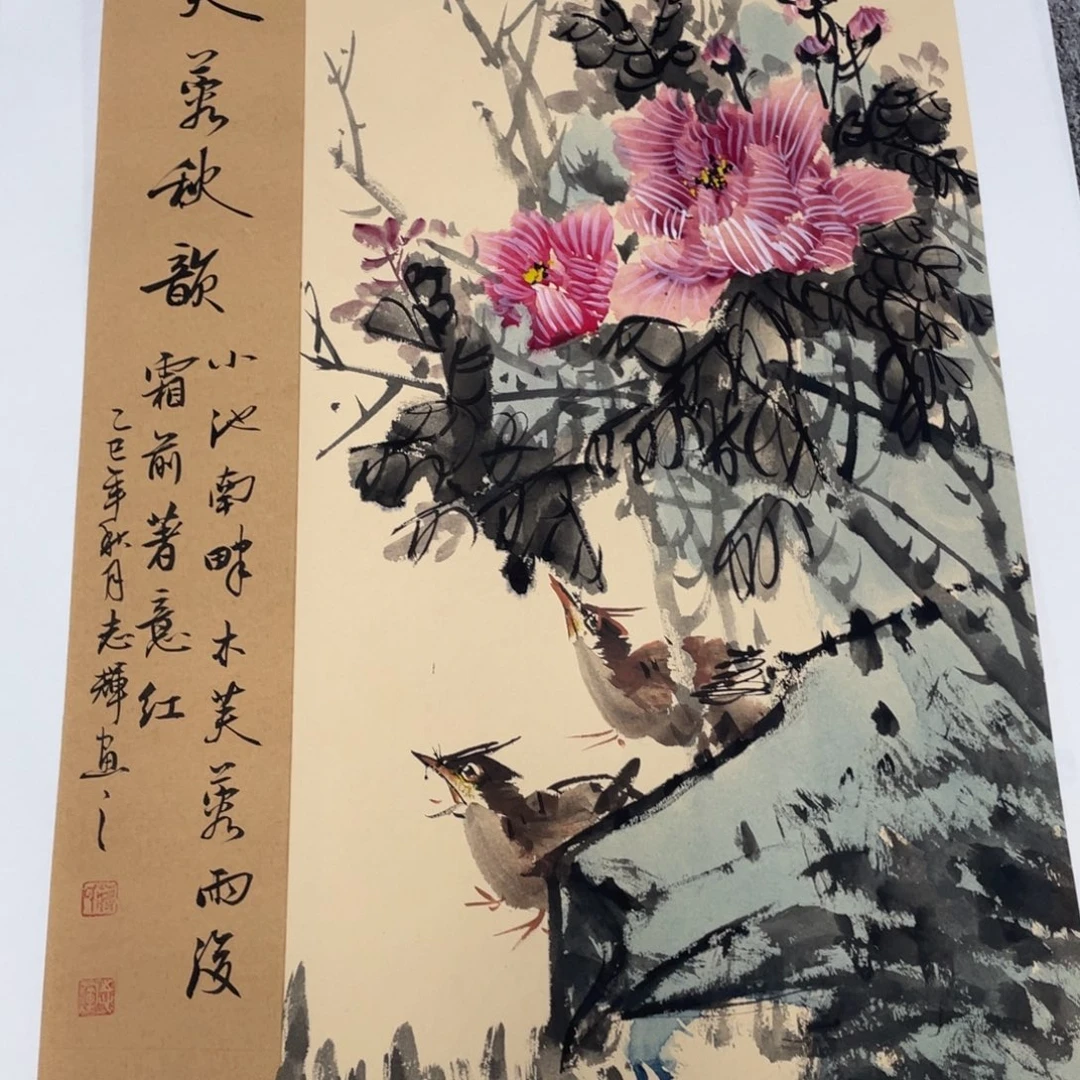 芙蓉秋韻
小池南畔木芙蓉雨後
霜前著意紅
乙巳年秋月志輝畫之